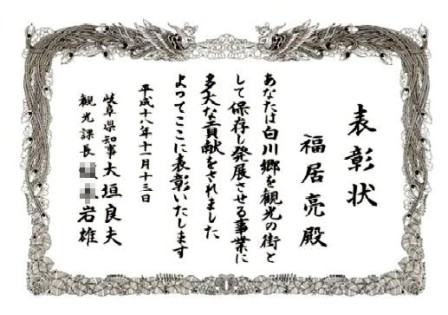 表彰状
福居亮殿
あなたは白川郷を観光の街と
して保存し発展させる事業に
多大な貢献をされました
よってここに表彰いたします
平成十八年十一月十三日
岐阜県知事大垣良夫
観光課長岩雄